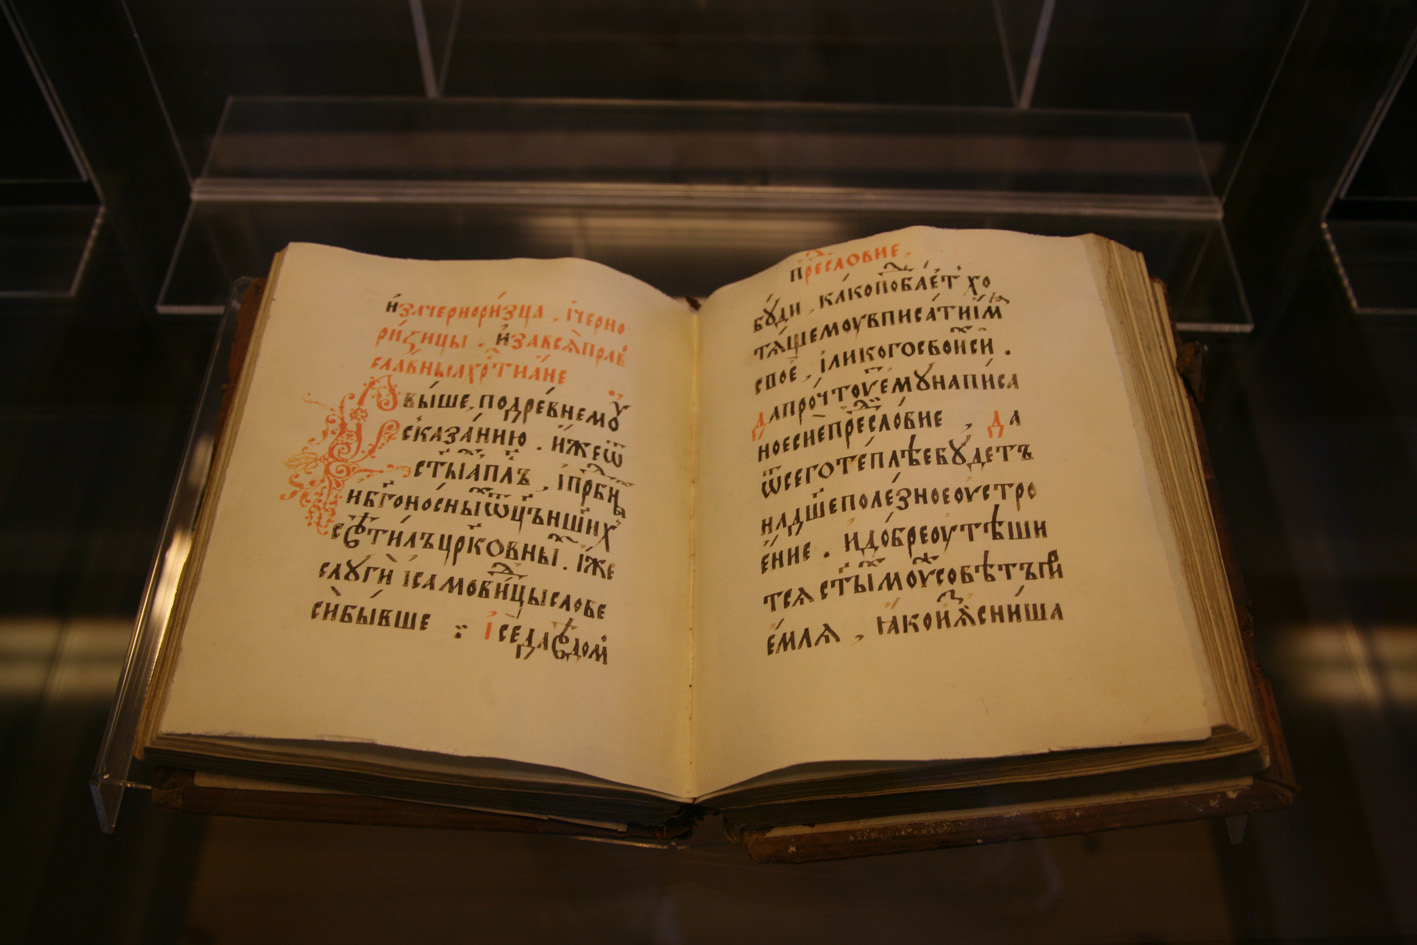 и҆зачернори́зца . і҆черно
ри́зицы . и҆завсѧ̀прав
сла́вныѧхр҇тиа́не
выше, подре́внемꙋ
сказа́нию . и҆́жеѿ
ст҃ы́апл҃ъ , і҆прⷣбн
и҆бг҃оно́сныⷯѿц҃ънш҃их
ст҃и́лъцр҃ко́вны . і҆́же
слꙋги̑ і҆самови́дцысло́ве
сѝбы́вше ; і҆седа
пресло́вие .
бꙋ́ди , ка́копоⷣба́етⷮ хо
тѧ́щемоувписа́тиі҆м
своѐ , і҆ликогосво́иси .
дапро́чтоуемꙋнапи́са
ноесиѐпресло́вие , да
ѿсего̀те́плѣебꙋ́детъ
надш҃еполе́зноеоустрое́
е́ние . и҆до́бреоутѣши
тсѧ ст҃ы́м моу҆совѣтъ
е́млѧ , ꙗ҆́кои҆ѧсни́ша